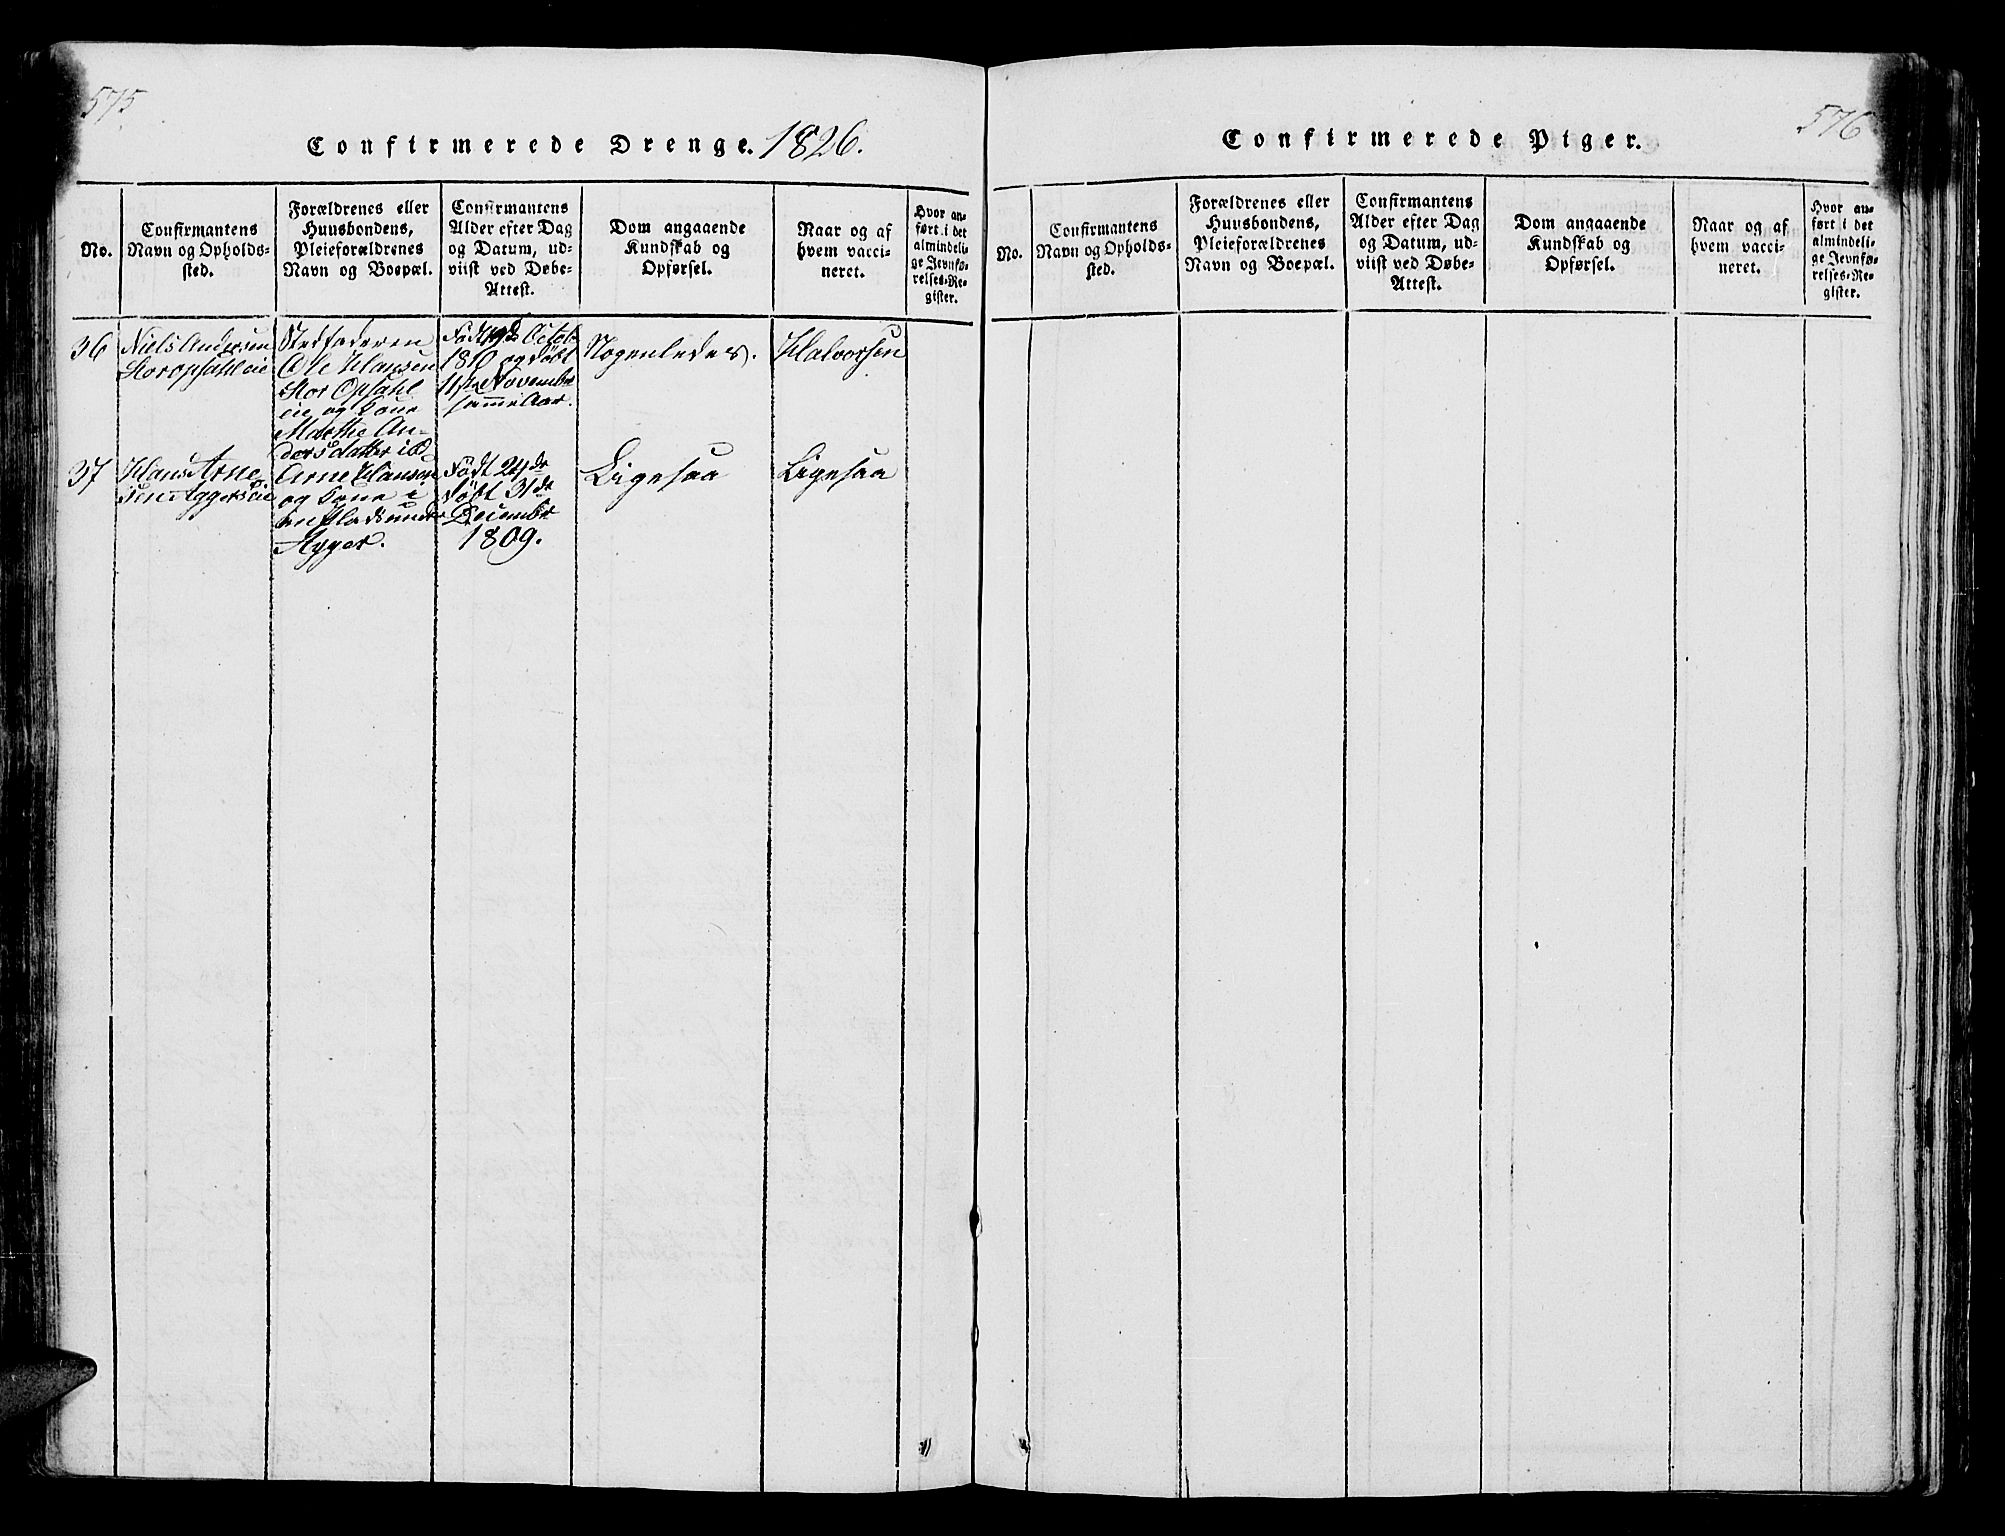 575
Confirmerede Drenge. 1826.
No.
Confirmantens
Navn og Opholds-
sted.
Forældrenes eller
Huusbondens,
Pleieforældrenes
Navn og Boepæl.
Confirmantens
Alder efter Dag
og Datum, ud-
viist ved Døbe-
Attest.
Dom angaaende
Kundskab og
Opførsel.
Naar og af
hvem vacci-
neret.
Hvor an-
ført i det
almindeli-
ge Jevnfø-
relses-Re-
gister.
36
Niels Andersen
Storopsahleie
Stedfaderen
Ole Hansen
Stor Opsahl
eie og Kone
Marthe An-
dersdatter ibd
Født 19de Octob.
1810 og døbt
11te Novembr
samme Aar.
Nogenledes.
Halvorsen
37
Hans Arne-
sen Aggerseie
Arne Hansen
og Kone i
en Plads under
Agger.
Født 24de
døbt 31de
Decembr
1809.
Ligesaa
Ligesaa
576
Confirmerede Piger.
No.
Confirmantens
Navn og Opholds-
sted.
Forældrenes eller
Huusbondens,
Pleieforældrenes
Navn og Boepæl.
Confirmantens
Alder efter Dag
og Datum, ud-
viist ved Døbe-
Attest.
Dom angaaende
Kundskab og
Opførsel.
Naar og af
hvem vacci-
neret.
Hvor an-
ført i det
almindeli-
ge Jevnfø-
relses-Re-
gister.